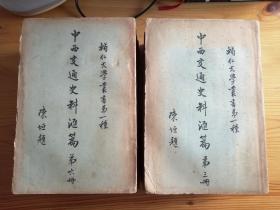 輔仁大學叢書第一種
中西交通史料匯篇 第六冊
陳垣題
輔仁大學叢書第一種
中西交通史料匯篇 第三冊
陳垣題